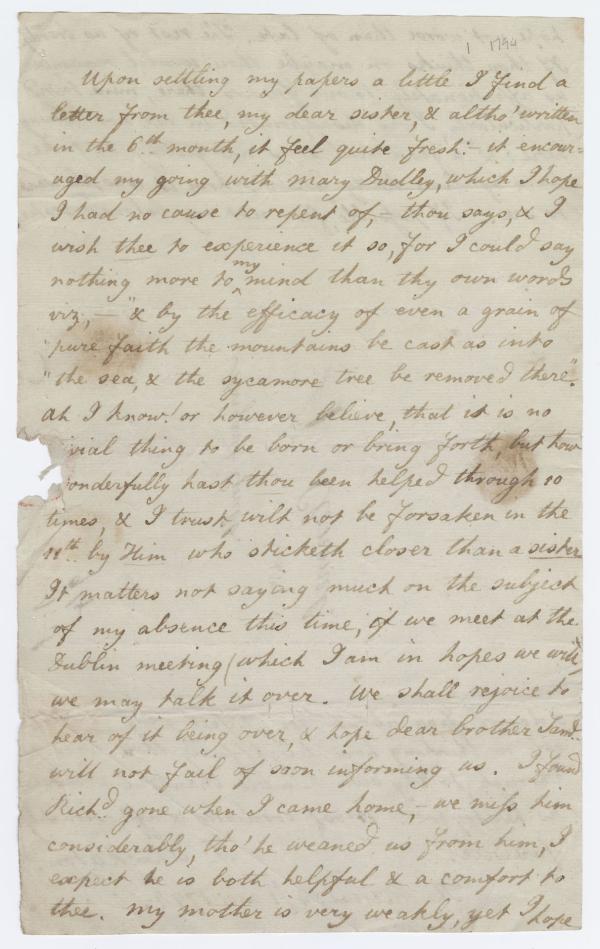 1 1794
Upon settling my papers a little I find a
letter from thee, my dear sister, & altho' written
in the 6th month, it feel quite fresh:- it encour=
aged my going with Mary Dudley, which I hope
I had no cause to repent of,- thou says, & I
wish thee to experience it so, for I could say
nothing more to my mind than thy own words
viz,- "& by the efficacy of even a grain of
"pure faith the mountains be cast as into
"the sea, & the sycamore tree be removed there".
ah I know! or however believe, that it is no
vial thing to be born or bring forth, but how
onderfully hast thou been helped through 10
times, & I trust, wilt not be forsaken in the
11th by Him who sticketh closer than a sister
It matters not saying much on the subject
of my absence this time, if we meet at the
Dublin meeting (which I am in hopes we will)
we may talk it over. We shall rejoice to
hear of it being over, & hope dear brother
will not fail of soon informing us. I found
Richd. gone when I came home,- we miss him
considerably, tho' he weaned us from him, I
expect he is both helpful & a comfort to
thee. My mother is very weakly, yet I hope